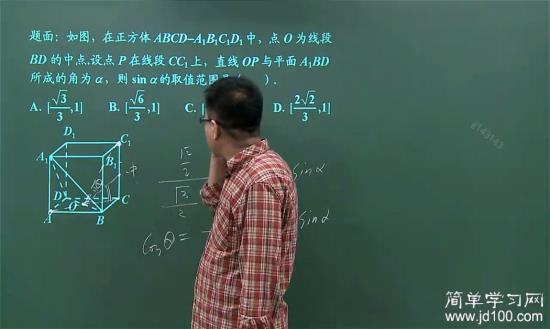 题面：如图，在正方体 ABCD–A₁B₁C₁D₁ 中，点 O 为线段
BD 的中点.设点 P 在线段 CC₁ 上，直线 OP 与平面 A₁BD
所成的角为 α，则 sin α 的取值范围是（ ）.
A. [√3/3,1] B. [√6/3,1] C. [ D. [2√2/3,1]
D₁
C₁
A₁
B₁
中
D
O
C
A
B
√2/2
√3/2
sinα
Cosθ =
sinα
简单学习网
www.jd100.com